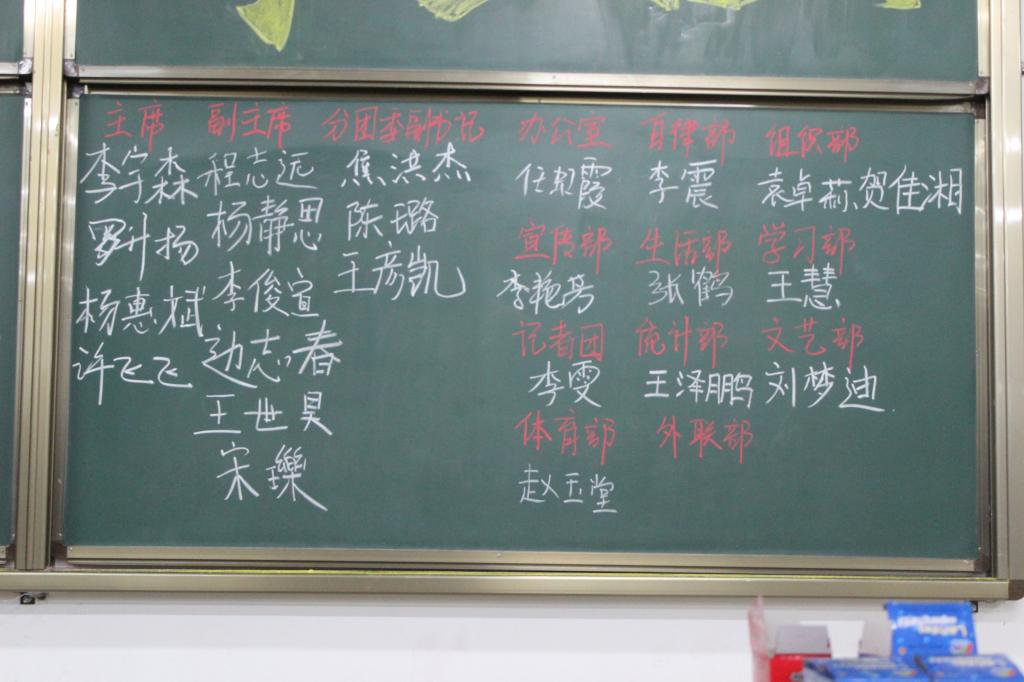 主席 副主席 分团委副书记 办公室 自律部 组织部
李宇森 程志远 焦洪杰 任超霞 李震 袁卓莉、贺佳湘
罗升扬 杨静思 陈璐 宣传部 生活部 学习部
杨惠斌 李俊宣 王彦凯 李艳芳 张鹤 王慧
许飞飞 边志春 记者团 统计部 文艺部
王世昊 李雯 王泽鹏 刘梦迪
宋璨 体育部 外联部
赵玉堂